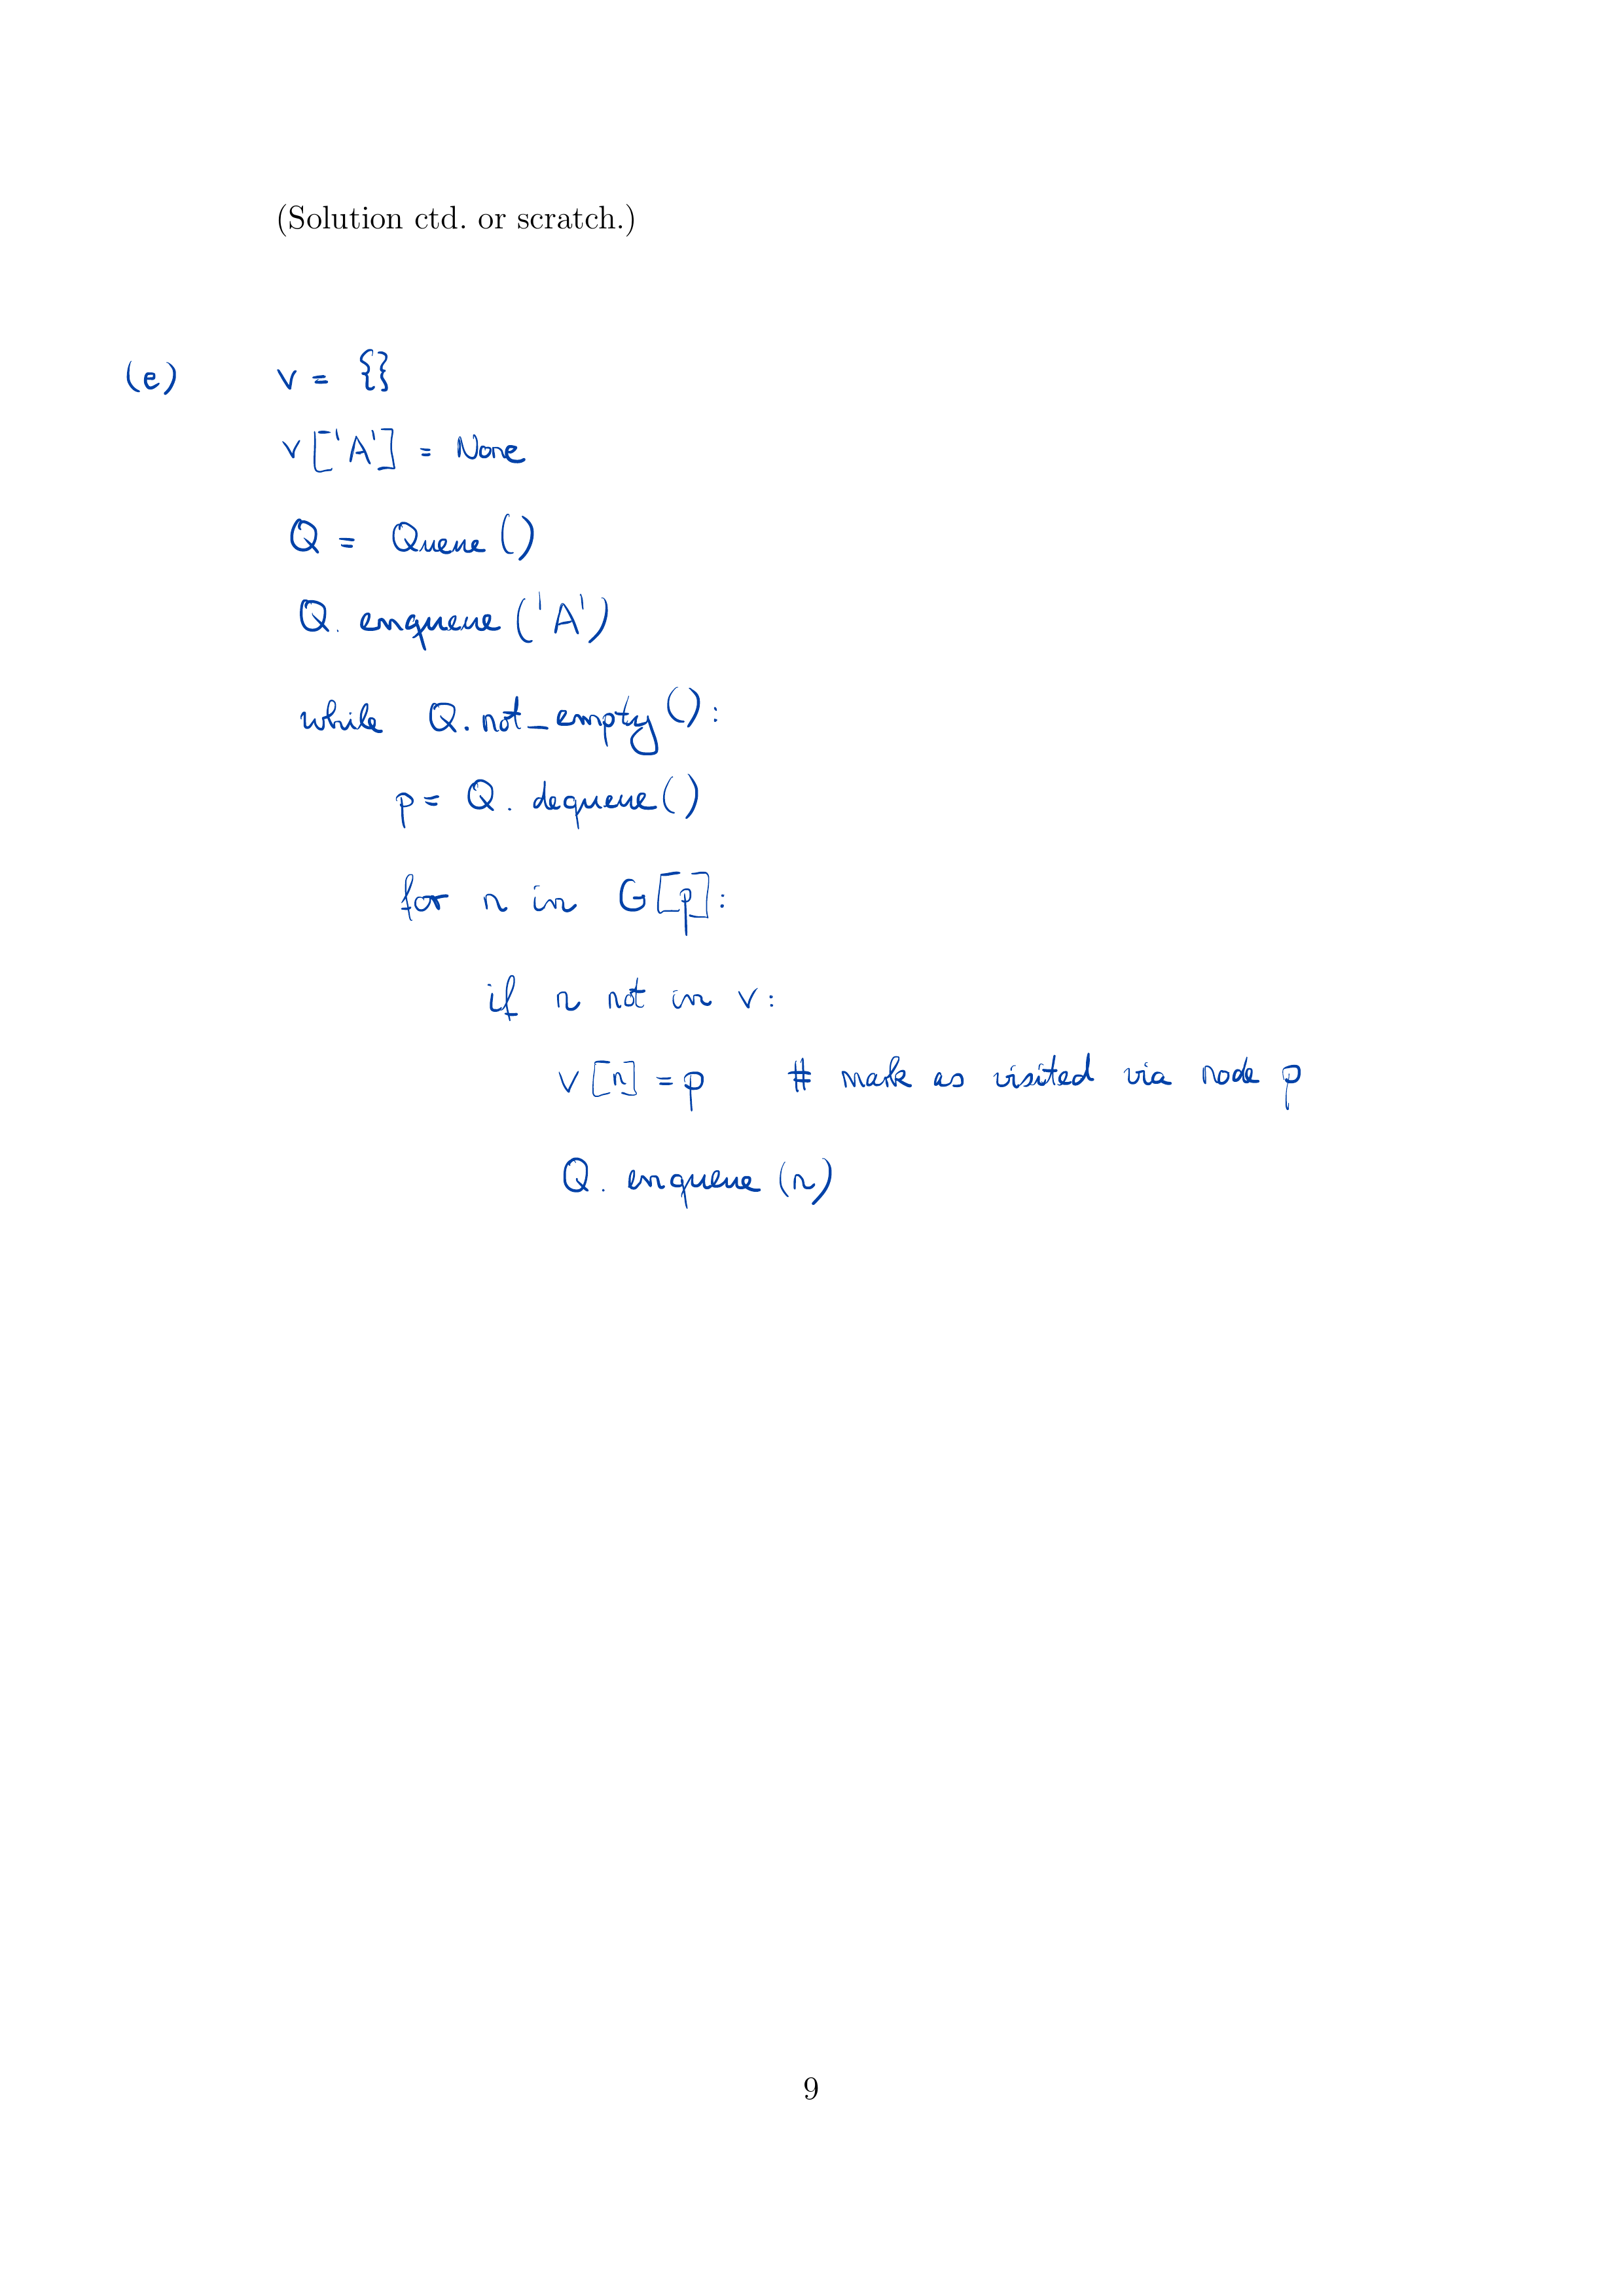 (Solution ctd. or scratch.)
(e) v = {}
v['A'] = None
Q = Queue()
Q. enqueue('A')
while Q.not_empty():
p = Q. dequeue()
for n in G[p]:
if n not in v:
v[n] = p # mark as visited via node p
Q. enqueue(n)
9